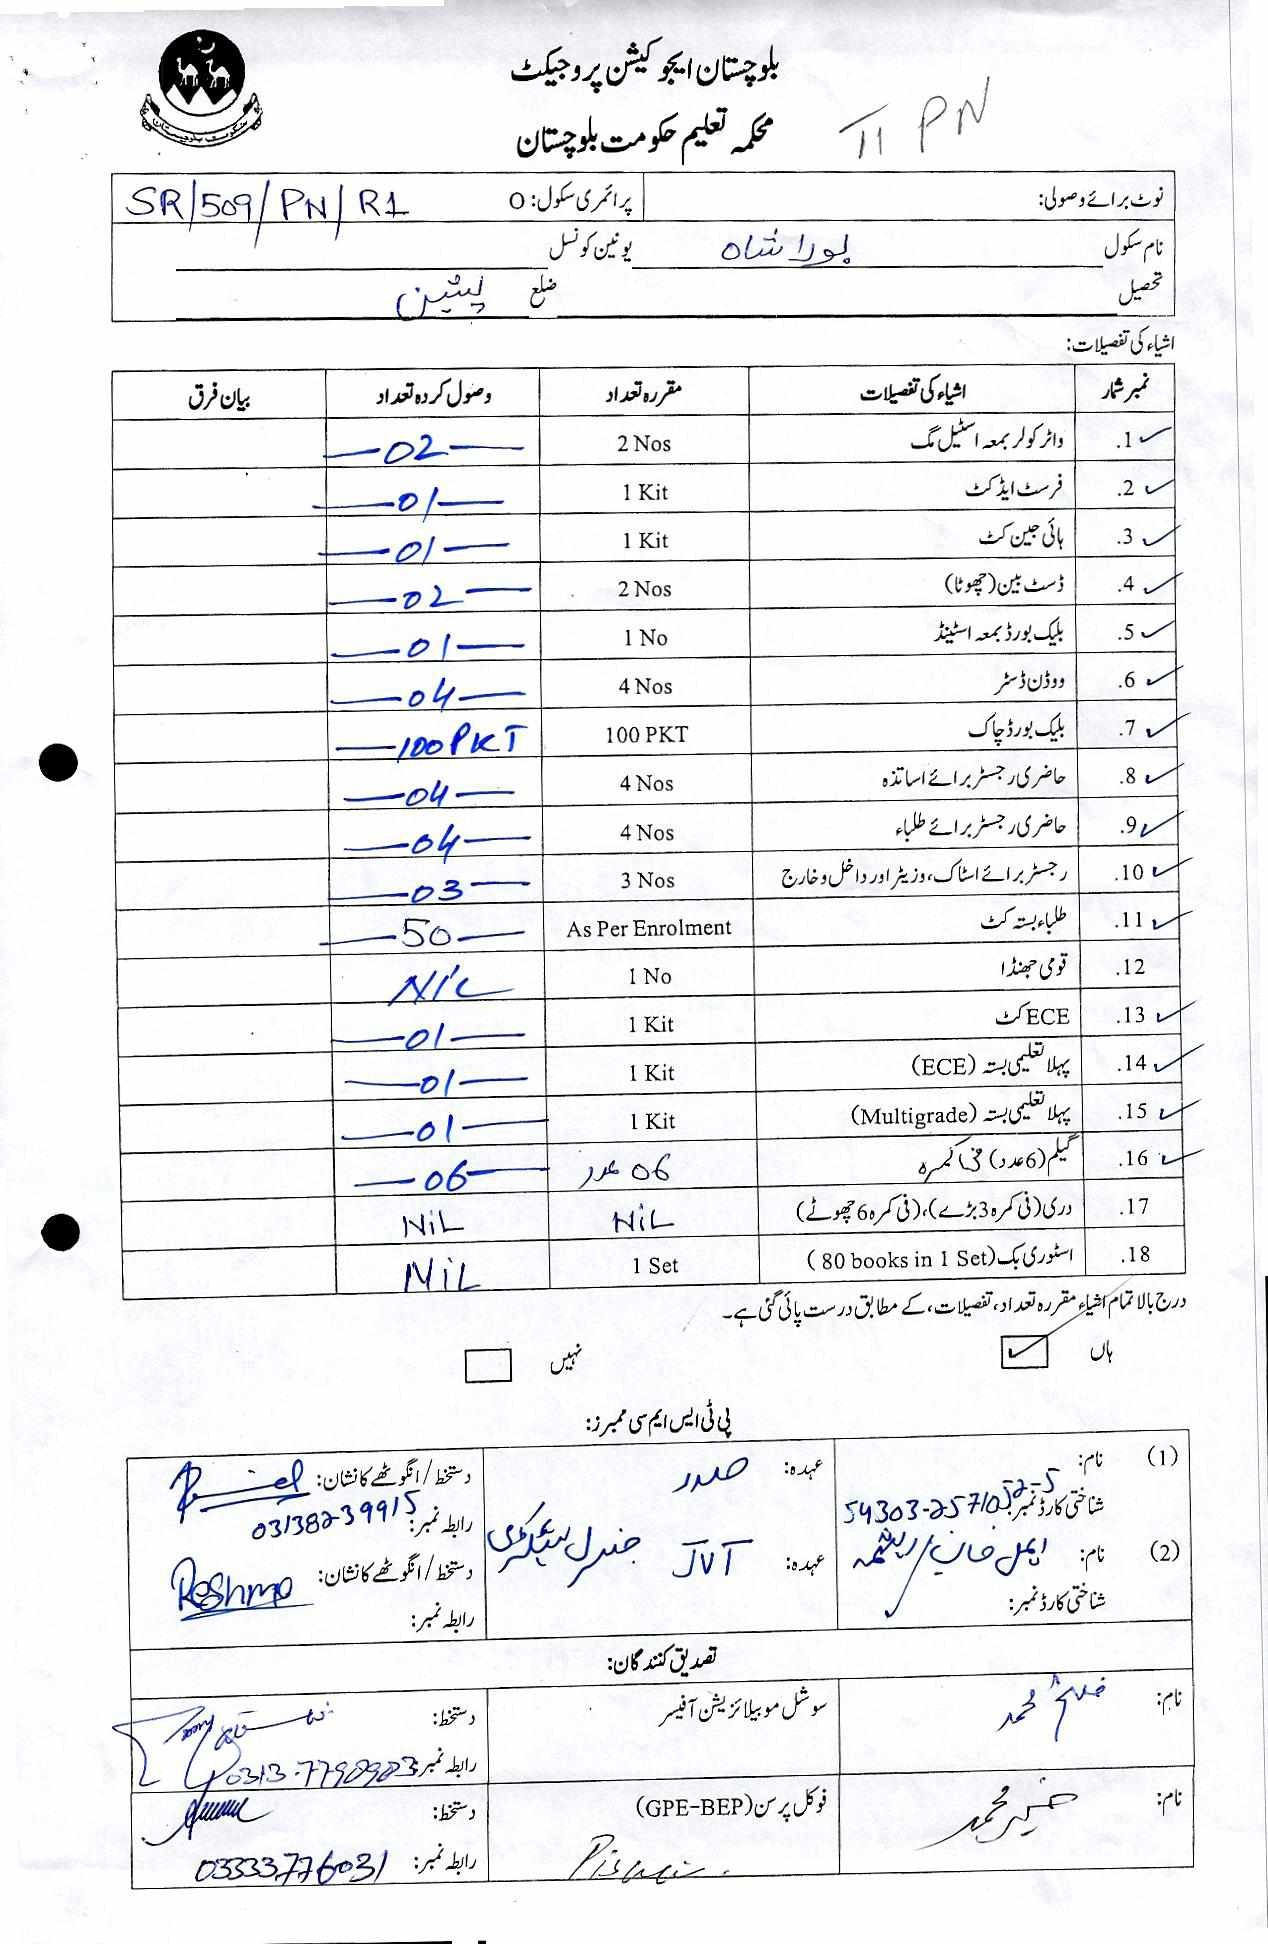 بلوچستان ایجوکیشن پروجیکٹ
محکمہ تعلیم حکومت بلوچستان
II PN
حکومت بلوچستان
نوٹ برائے وصولی: پرائمری سکول: O SR/509/PN/R1
نام سکول پوراشاہ یونین کونسل
تحصیل ضلع پشین
اشیاء کی تفصیلات:
نمبر شمار اشیاء کی تفصیلات مقررہ تعداد وصول کردہ تعداد بیان فرق
1. واٹر کولر بمعہ اسٹیل مگ 2 Nos 02
2. فرسٹ ایڈ کٹ 1 Kit 01
3. ہائی جین کٹ 1 Kit 01
4. ڈسٹ بین (چھوٹا) 2 Nos 02
5. بلیک بورڈ بمعہ اسٹینڈ 1 No 01
6. ووڈن ڈسٹر 4 Nos 04
7. بلیک بورڈ چاک 100 PKT 100 PKT
8. حاضری رجسٹر برائے اساتذہ 4 Nos 04
9. حاضری رجسٹر برائے طلباء 4 Nos 04
10. رجسٹر برائے اسٹاک، وزیٹر اور داخل و خارج 3 Nos 03
11. طلباء بستہ کٹ As Per Enrolment 50
12. قومی جھنڈا 1 No NIL
13. ECE کٹ 1 Kit 01
14. پہلا تعلیمی بستہ (ECE) 1 Kit 01
15. پہلا تعلیمی بستہ (Multigrade) 1 Kit 01
16. گیلم (6 عدد) فی کمرہ 06 عدد 06
17. دری (فی کمرہ 3 بڑے)، (فی کمرہ 6 چھوٹے) NiL NiL
18. اسٹوری بک (80 books in 1 Set) 1 Set NiL
درج بالا تمام اشیاء مقررہ تعداد، تفصیلات، کے مطابق درست پائی گئی ہے۔
ہاں ✓ نہیں
پی ٹی ایس ایم سی ممبرز:
(1) نام: عہدہ: صدر دستخط / انگوٹھے کا نشان:
شناختی کارڈ نمبر: 54303-2571052-5 رابطہ نمبر: 03138239915
(2) نام: ایمل خان / ریشمہ عہدہ: JVT جنرل سیکرٹری دستخط / انگوٹھے کا نشان: Reshma
شناختی کارڈ نمبر: رابطہ نمبر:
تصدیق کنندگان:
نام: محمد سوشل موبیلائزیشن آفیسر دستخط:
رابطہ نمبر: 0313-7790903
نام: محمد فوکل پرسن (GPE-BEP) دستخط:
Pishin رابطہ نمبر: 03333776031